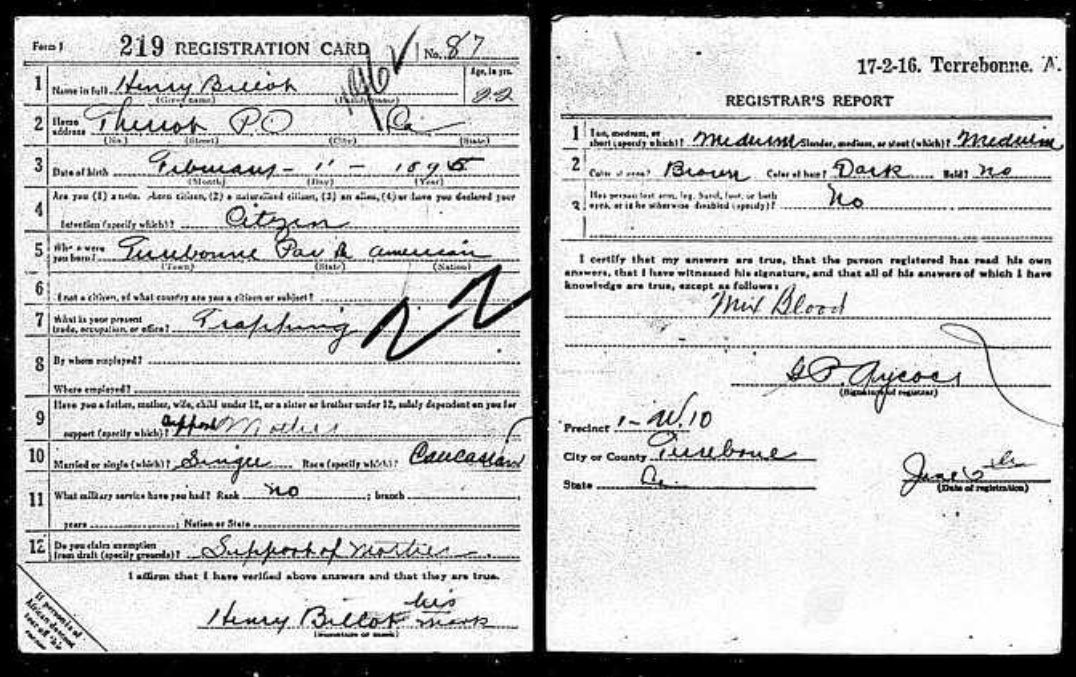 Form 1 219 REGISTRATION CARD No. 87
1 Name in full Henry Billiot Age, in yrs.
(Given name) (Family name) 22
2 Home address Theriot P.O La
(No.) (Street) (City) (State)
3 Date of birth February - 1 - 1895
(Month) (Day) (Year)
4 Are you (1) a natural-born citizen, (2) a naturalized citizen, (3) an alien, (4) or have you declared your
intention (specify which)? Citizen
5 Where were you born? Terrebonne Par La american
(Town) (State) (Nation)
6 If not a citizen, of what country are you a citizen or subject?
7 What is your present trade, occupation, or office? Trapping
8 By whom employed?
Where employed?
9 Have you a father, mother, wife, child under 12, or a sister or brother under 12, solely dependent on you for
support (specify which)? Support Mother
10 Married or single (which)? Single Race (specify which)? Caucasian
11 What military service have you had? Rank no ; branch
years ; Nation or State
12 Do you claim exemption from draft (specify grounds)? Support of Mother
I affirm that I have verified above answers and that they are true.
Henry Billot his mark
If person is of
African descent
tear off this
corner
17-2-16. Terrebonne. A.
REGISTRAR'S REPORT
1 Tall, medium, or short (specify which)? Medium Slender, medium, or stout (which)? Medium
2 Color of eyes? Brown Color of hair? Dark Bald? No
3 Has person lost arm, leg, hand, foot, or both
eyes, or is he otherwise disabled (specify)? No
I certify that my answers are true, that the person registered has read his own
answers, that I have witnessed his signature, and that all of his answers of which I have
knowledge are true, except as follows:
Mix Blood
G.P. Aycock
(Signature of registrar)
Precinct 1 - W. 10
City or County Terrebone
State La. June 5th
(Date of registration)